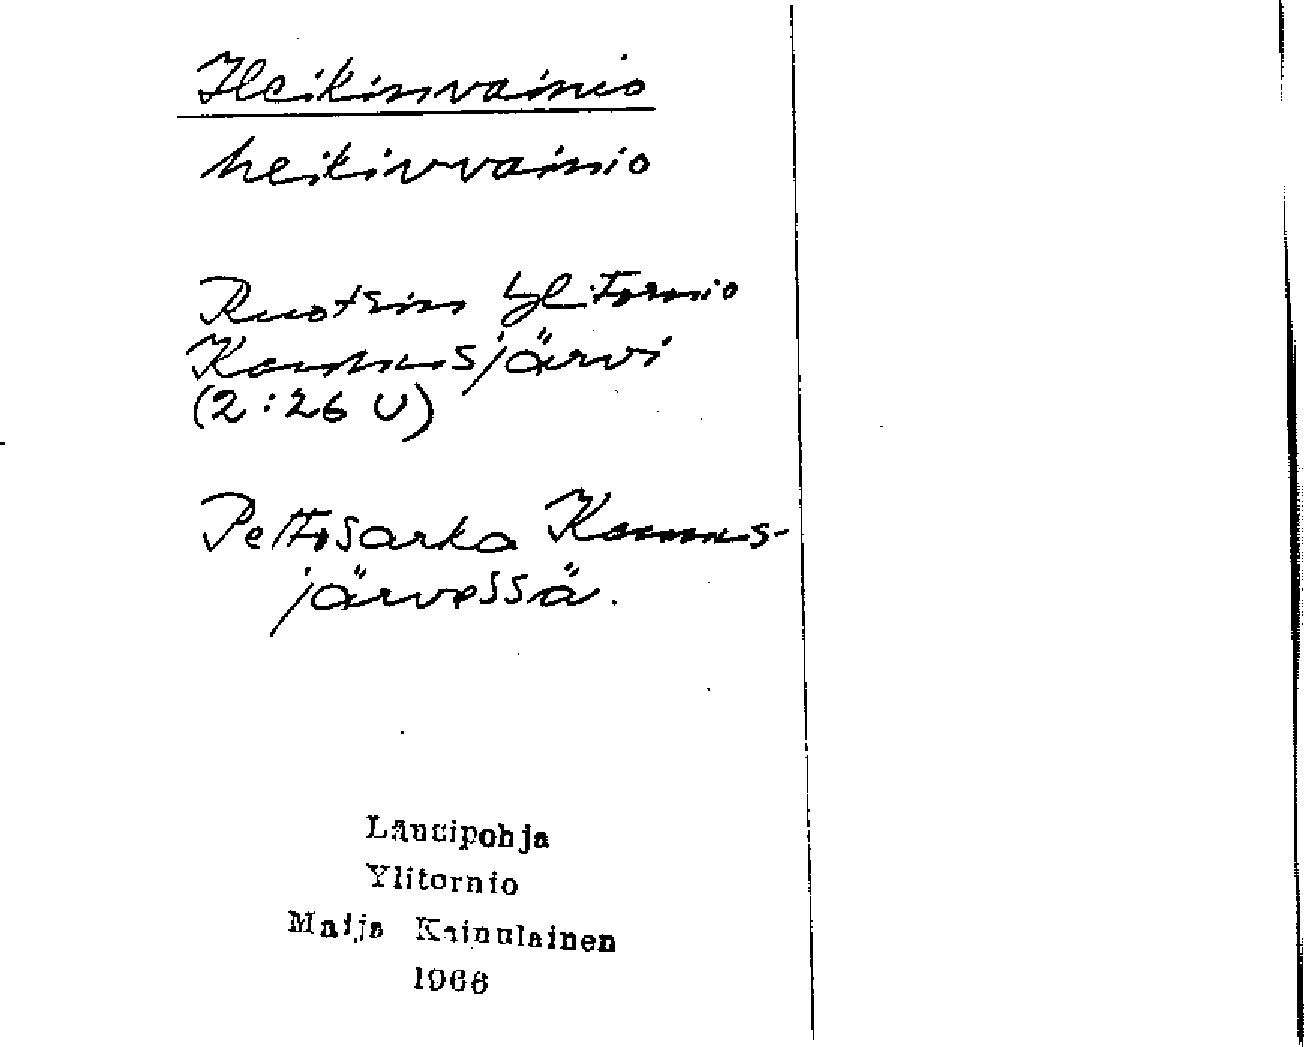 Heikinvainio
heikivvainio
Ruotsin Ylitornio
Kaunusjärvi
(2:26 U)
Peltosarka Kaunus-
järvessä.
Lansipohja
Ylitornio
Maija Kainulainen
1966